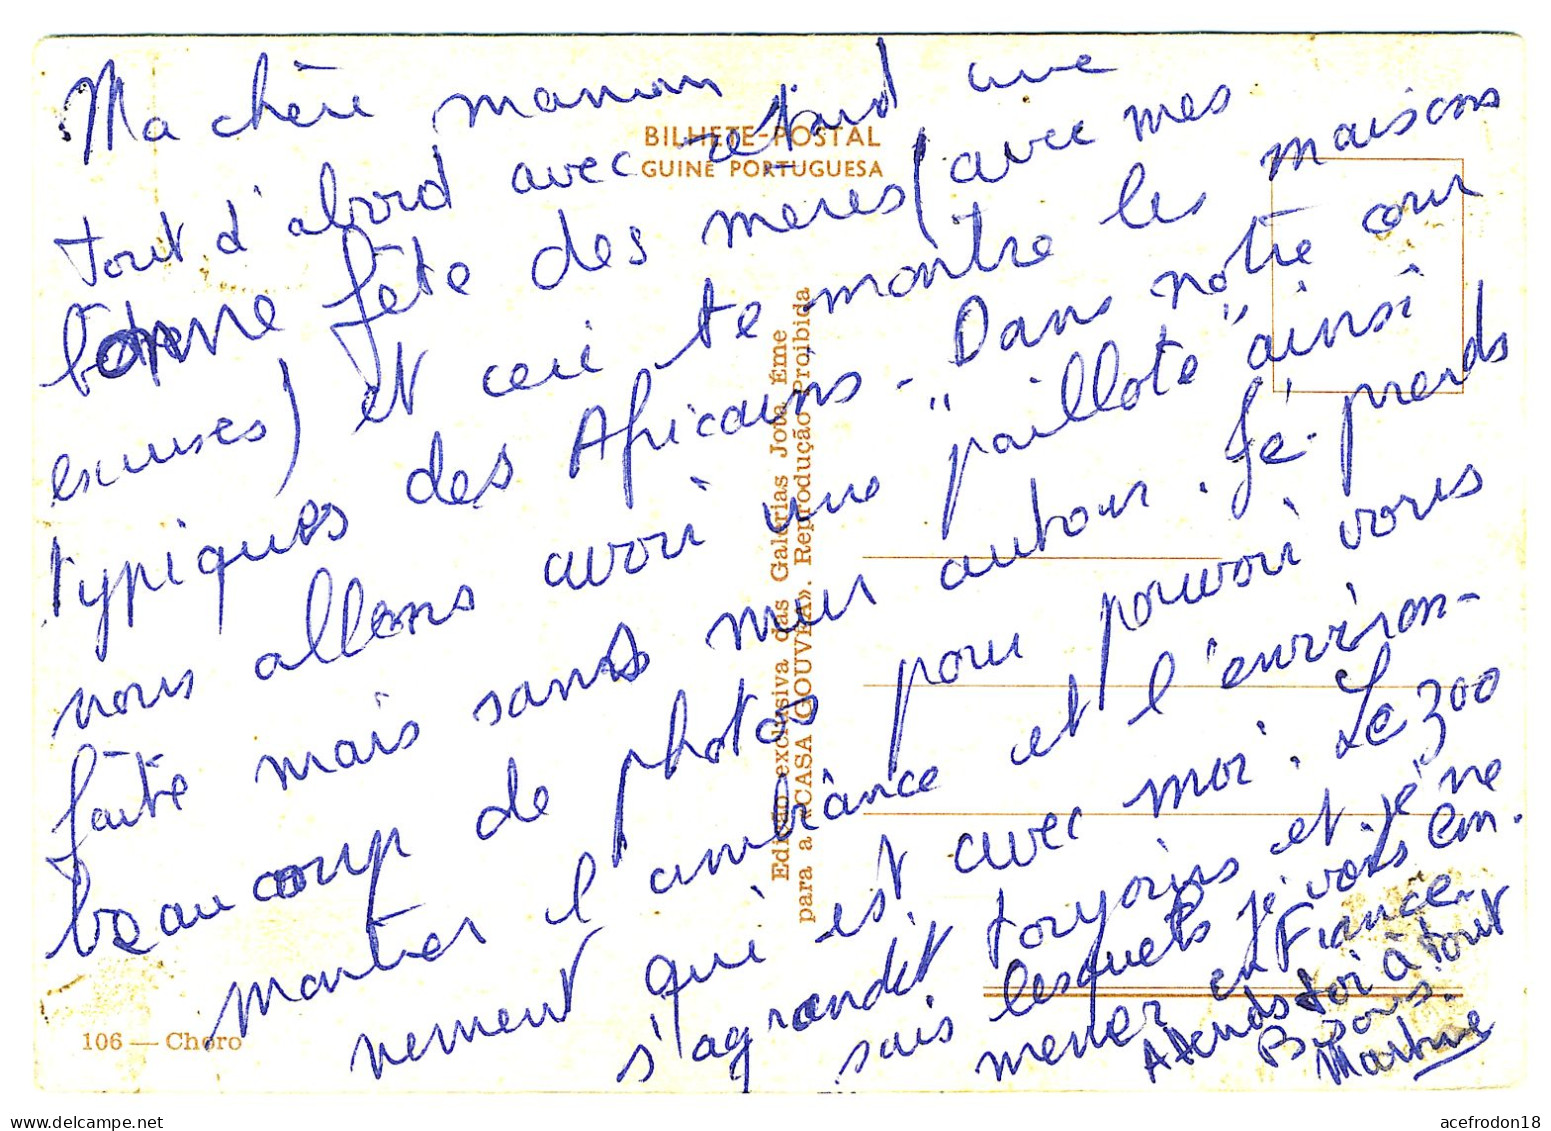 Ma chère maman
BILHETE-POSTAL
GUINÉ PORTUGUESA
tout d'abord avec retard une
bonne fête des meres (avec mes
excuses) et ceci te montre les maisons
typiques des Africains - Dans notre cour
nous allons avoir une "paillote" ainsi
faite mais sans mur autour. Jé prends
beaucoup de photos pour pouvoir vous
montrer l'ambiânce et l'environ-
nement qui est avec moi. Le zoo
s'agrandit toujours et je ne
sais lesquels je vais em.
mener en France.
Attends toi à tout
Bisous.
Martine
Edição exclusiva das Galerias Jota Éme
para a «CASA GOUVEA». Reprodução Proibida
106 — Choro
acefrodon18